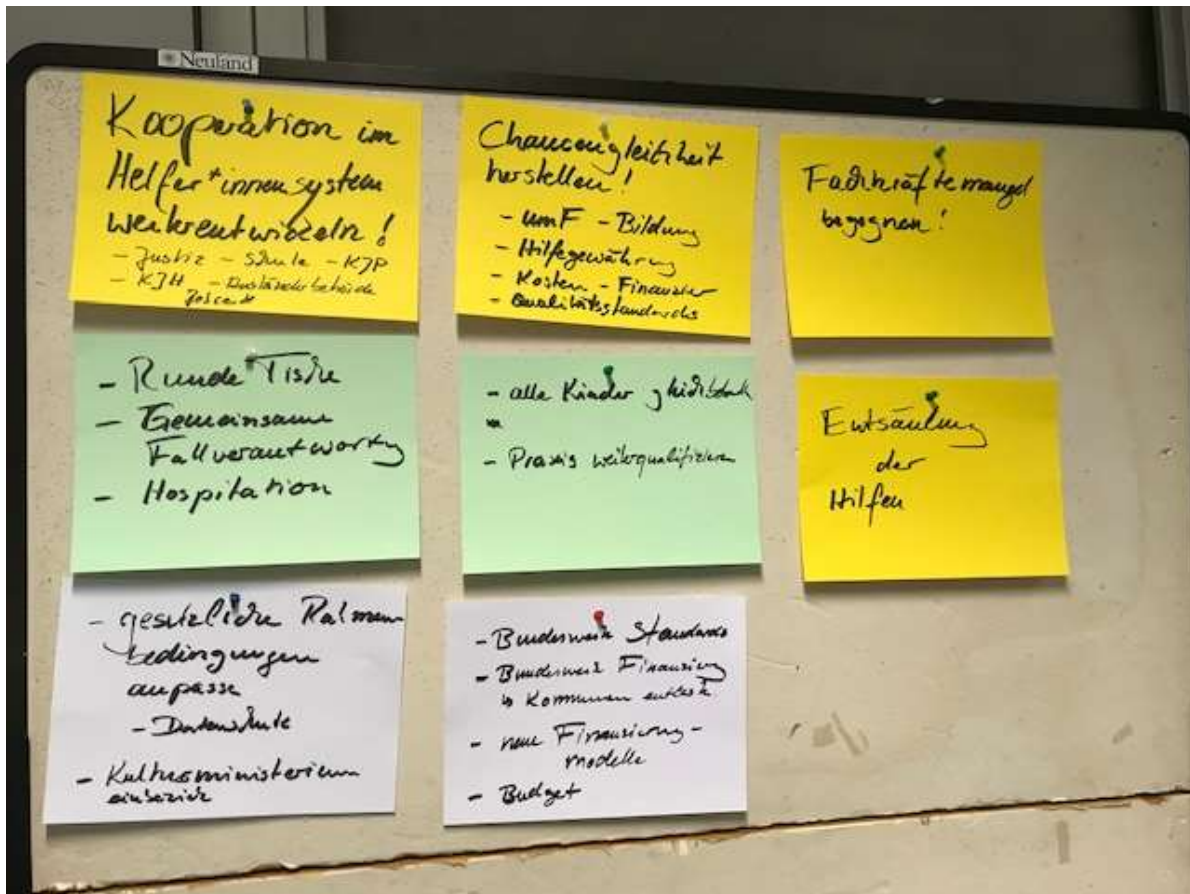 Neuland
Kooperation im
Helfer*innensystem
weiterentwickeln!
- Justiz - Schule - KJP
- KJH - Ausländerbehörde
- Runde Tische
- Gemeinsame
Fallverantwortg
- Hospitation
- gesetzliche Rahmen
bedingungen
anpasse
- Datenschutz
- Kultusministerium
einbezieh
Chancengleichheit
herstellen!
- umF - Bildung
- Hilfegewährung
- Kosten - Finanzier
- Qualitätsstandards
- alle Kinder gleichbeh
-
- Praxis weiterqualifizieren
- Bundesweite Standards
- Bundesweit Finanzierg
Kommunen entlast
- neue Finanzierung-
modelle
- Budget
Fachkräftemangel
begegnen!
Entsäulung
der
Hilfen